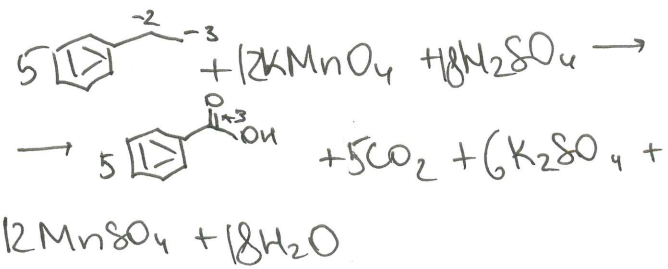 5 -2 -3 + 12KMnO4 + 18H2SO4 →
→ 5 O +3 OH + 5CO2 + 6K2SO4 +
12MnSO4 + 18H2O